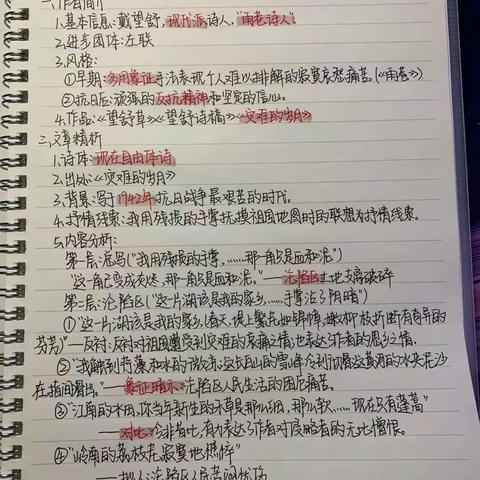 一、作者简介
1.基本信息:戴望舒,现代派诗人,“雨巷诗人”
2.进步团体:左联
3.风格:
①早期:多用象征手法表现个人难以排解的寂寞哀愁痛苦。(《雨巷》)
②抗日后:顽强的反抗精神和坚定的信心。
4.作品:《望舒草》《望舒诗稿》《灾难的岁月》
二、文章精析
1.诗体:现在自由体诗
2.出处:《灾难的岁月》
3.背景:写于1942年,抗日战争最艰苦的时代。
4.抒情线索:我用残损的手掌抚摸祖国地图时的联想为抒情线索。
5.内容分析:
第一层:总写(“我用残损的手掌,……那一角只是血和泥”)
“这一角已变成灰烬,那一角只是血和泥。”——沦陷区土地支离破碎
第二层:沦陷区(“这一片湖该是我的家乡,……手掌沾了阴暗”)
①“这一片湖该是我的家乡,(春天,堤上繁花如锦幛,嫩柳枝折断有奇异的
芬芳)”—反衬:反衬对祖国遭受到灾难的哀痛之情,也表达了作者的思乡之情。
②“我触到荇藻和水的微凉;这长白山的雪峰冷到彻骨,这黄河的水夹泥沙
在指间滑出。”——象征暗示:沦陷区人民生活的困厄痛苦。
③“江南的水田,你当年新生的禾草是那么细,那么软,……现在只有蓬蒿”
——对比:今非昔比,有力表达了作者对侵略者的无比憎恨。
④“岭南的荔枝花寂寞地憔悴”
——拟人:沦陷区人民苦闷忧伤